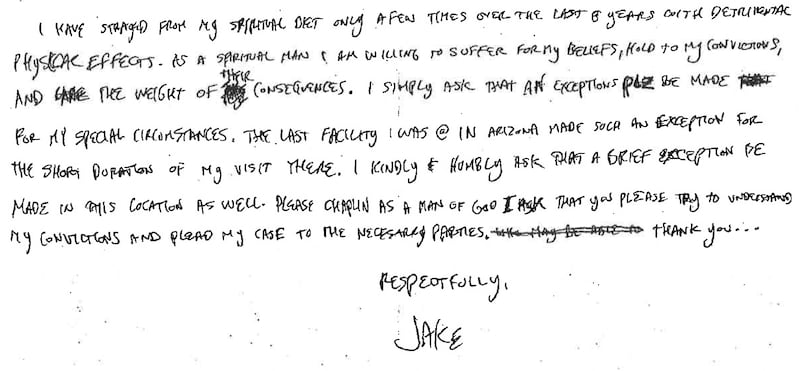 I HAVE STRAYED FROM MY SPIRITUAL DIET ONLY A FEW TIMES OVER THE LAST 8 YEARS WITH DETRIMENTAL
PHYSICAL EFFECTS. AS A SPIRITUAL MAN I AM WILLING TO SUFFER FOR MY BELIEFS, HOLD TO MY CONVICTIONS,
AND THE WEIGHT OF THEIR CONSEQUENCES. I SIMPLY ASK THAT AN EXCEPTIONS BE MADE
FOR MY SPECIAL CIRCUMSTANCES. THE LAST FACILITY I WAS @ IN ARIZONA MADE SUCH AN EXCEPTION FOR
THE SHORT DURATION OF MY VISIT THERE. I KINDLY & HUMBLY ASK THAT A BRIEF EXCEPTION BE
MADE IN THIS LOCATION AS WELL. PLEASE CHAPLIN AS A MAN OF GOD I ASK THAT YOU PLEASE TRY TO UNDERSTAND
MY CONVICTIONS AND PLEAD MY CASE TO THE NECESSARY PARTIES. THANK YOU...
RESPECTFULLY,
JAKE